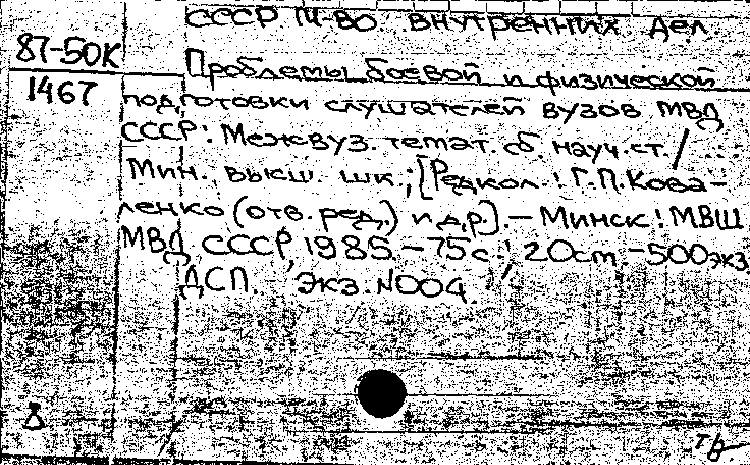 СССР М-во внутренних дел
87-50К
1467
Проблемы боевой и физической
подготовки слушателей вузов МВД
СССР: Межвуз. темат. сб. науч. ст. / ...
Мин. высш. шк.; [Редкол.: Г.П. Кова-
ленко (отв. ред.) и др.]. — Минск: МВШ
МВД СССР, 1985. — 75 с.; 20 см. — 500 экз
ДСП. Экз. N 004.